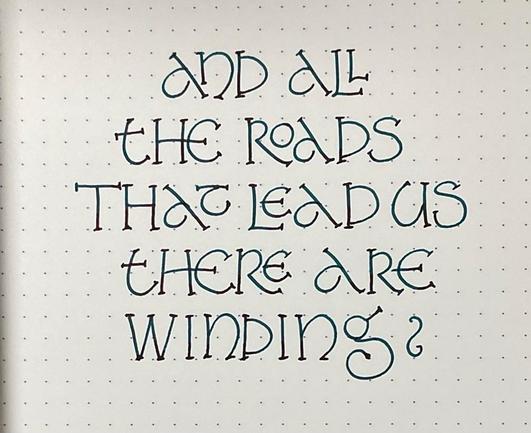 AND ALL
THE ROADS
THAT LEAD US
THERE ARE
WINDING?